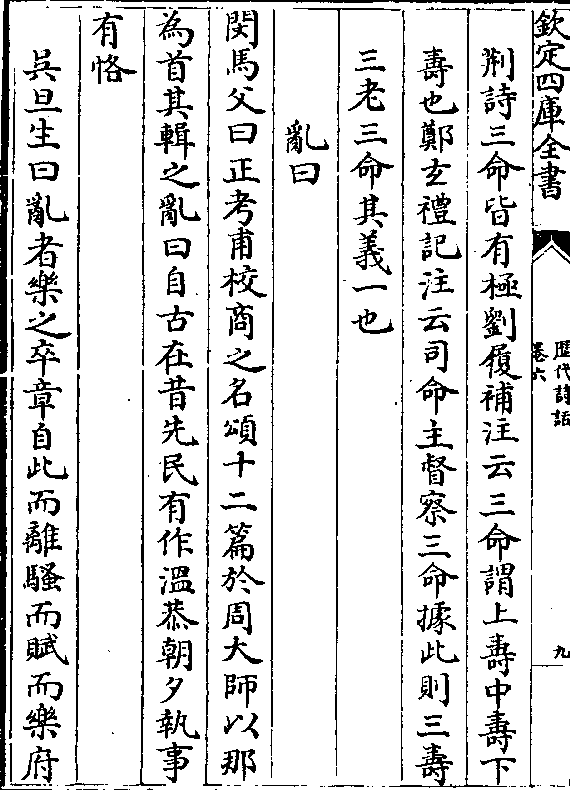 欽定四庫全書
歷代詩話
卷六
九
荆詩三命皆有極劉履補注云三命謂上壽中壽下
壽也鄭玄禮記注云司命主督察三命據此則三壽
三老三命其義一也
亂曰
閔馬父曰正考甫校商之名頌十二篇於周大師以那
為首其輯之亂曰自古在昔先民有作溫恭朝夕執事
有恪
吳旦生曰亂者樂之卒章自此而離騷而賦而樂府